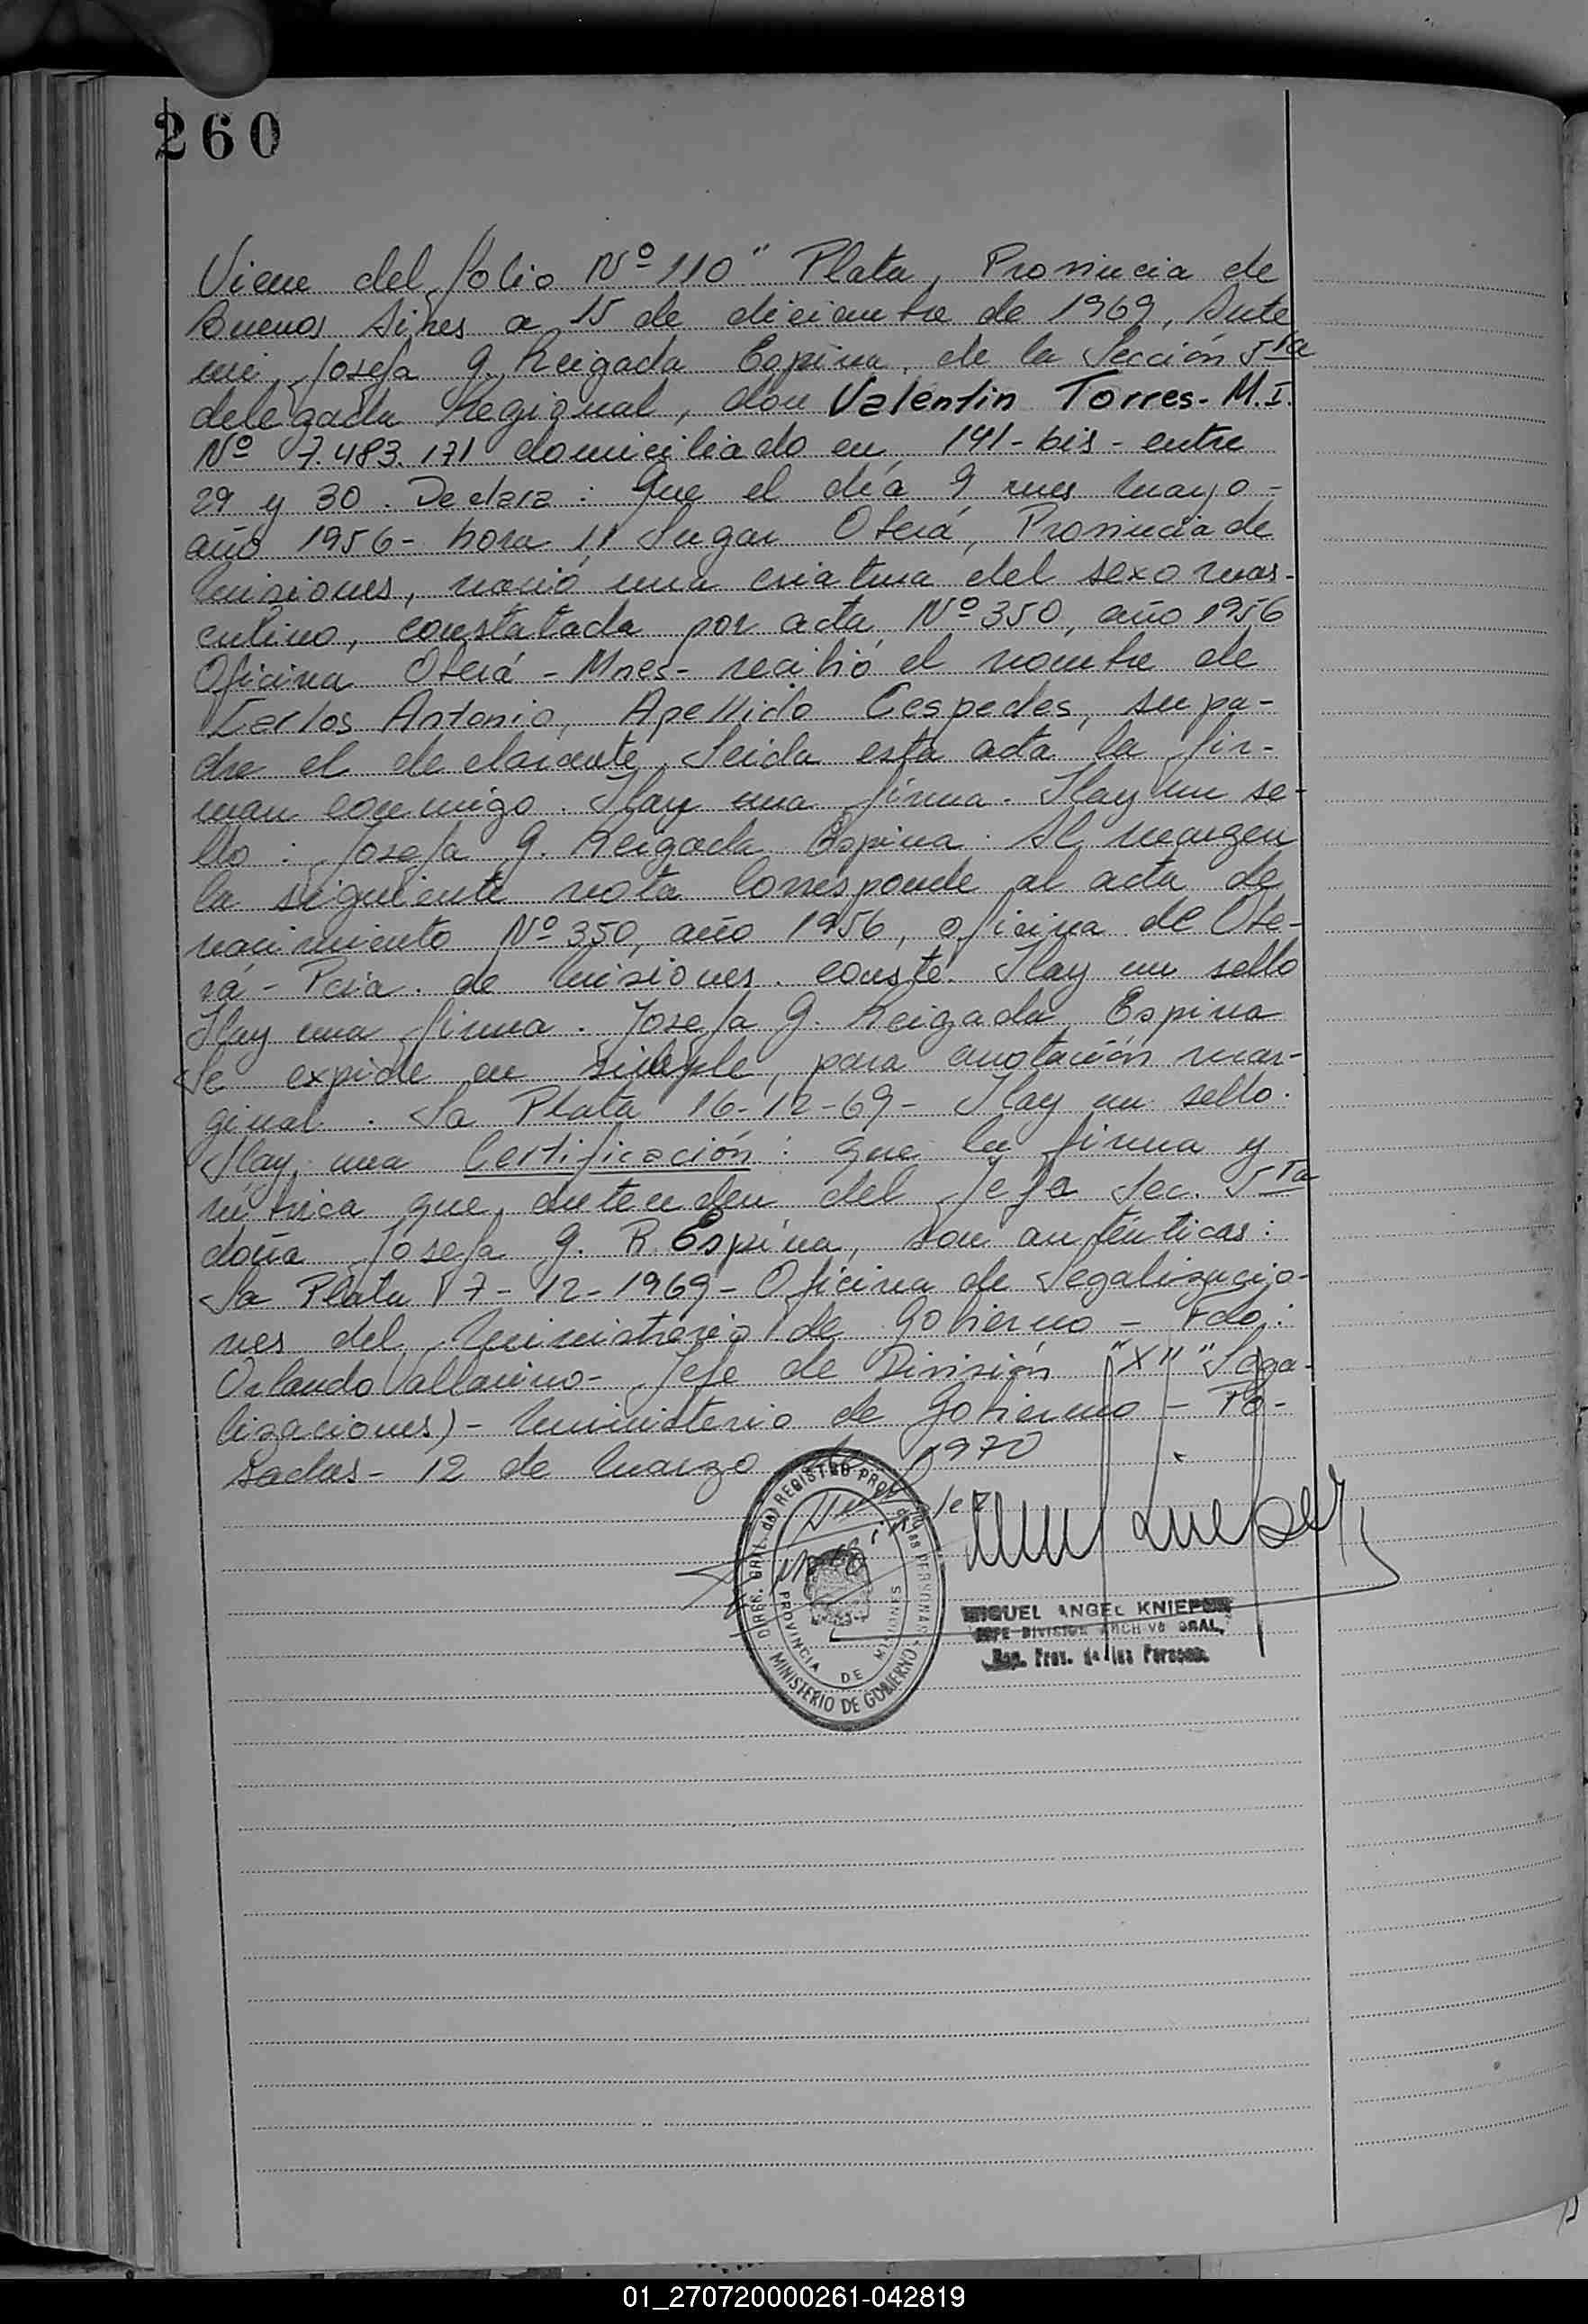 260
Viene del folio Nº 110" Plata, Provincia de
Buenos Aires a 15 de diciembre de 1969, Ante
mí, Josefa G. Reigada Espina, de la Sección 5ta
delegada Regional, don Valentin Torres - M.I.
Nº 7.483.171 domiciliado en 141 - bis - entre
29 y 30. Declara: Que el día 9 mes Mayo -
año 1956 - hora 11 Lugar Oberá, Provincia de
Misiones, nació una criatura del sexo mas-
culino, constatada por acta Nº 350, año 1956
Oficina Oberá - Mnes - recibió el nombre de
Carlos Antonio, Apellido Cespedes, su pa-
dre el declarante. Leida esta acta la fir-
man conmigo. Hay una firma. Hay un se-
llo: Josefa G. Reigada Espina: Al margen
la siguiente nota Corresponde al acta de
nacimiento Nº 350, año 1956, oficina de Obe-
rá - Pcia. de Misiones. conste. Hay un sello
Hay una firma. Josefa G. Reigada Espina
Se expide en simple, para anotación mar-
ginal. La Plata 16-12-69 - Hay un sello.
Hay una Certificación: Que la firma y
rúbrica que anteceden del Jefa Sec. 5Ta
doña Josefa G. R. Espina, son auténticas:
La Plata 17-12-1969 - Oficina de Legalizacio-
nes del Ministerio de Gobierno - Fdo:
Orlando Vallarino - Jefe de División "X" "Lega-
lizaciones) - Ministerio de Gobierno - Po-
sadas - 12 de Marzo de 1970
DIREC. GRAL. del REGISTRO PROV. de las PERSONAS
PROVINCIA DE MISIONES
MINISTERIO DE GOBIERNO
MIGUEL ANGEL
JEFE DIVISION ARCHIVO GRAL.
Reg. Prov. de las Personas
01_270720000261-042819